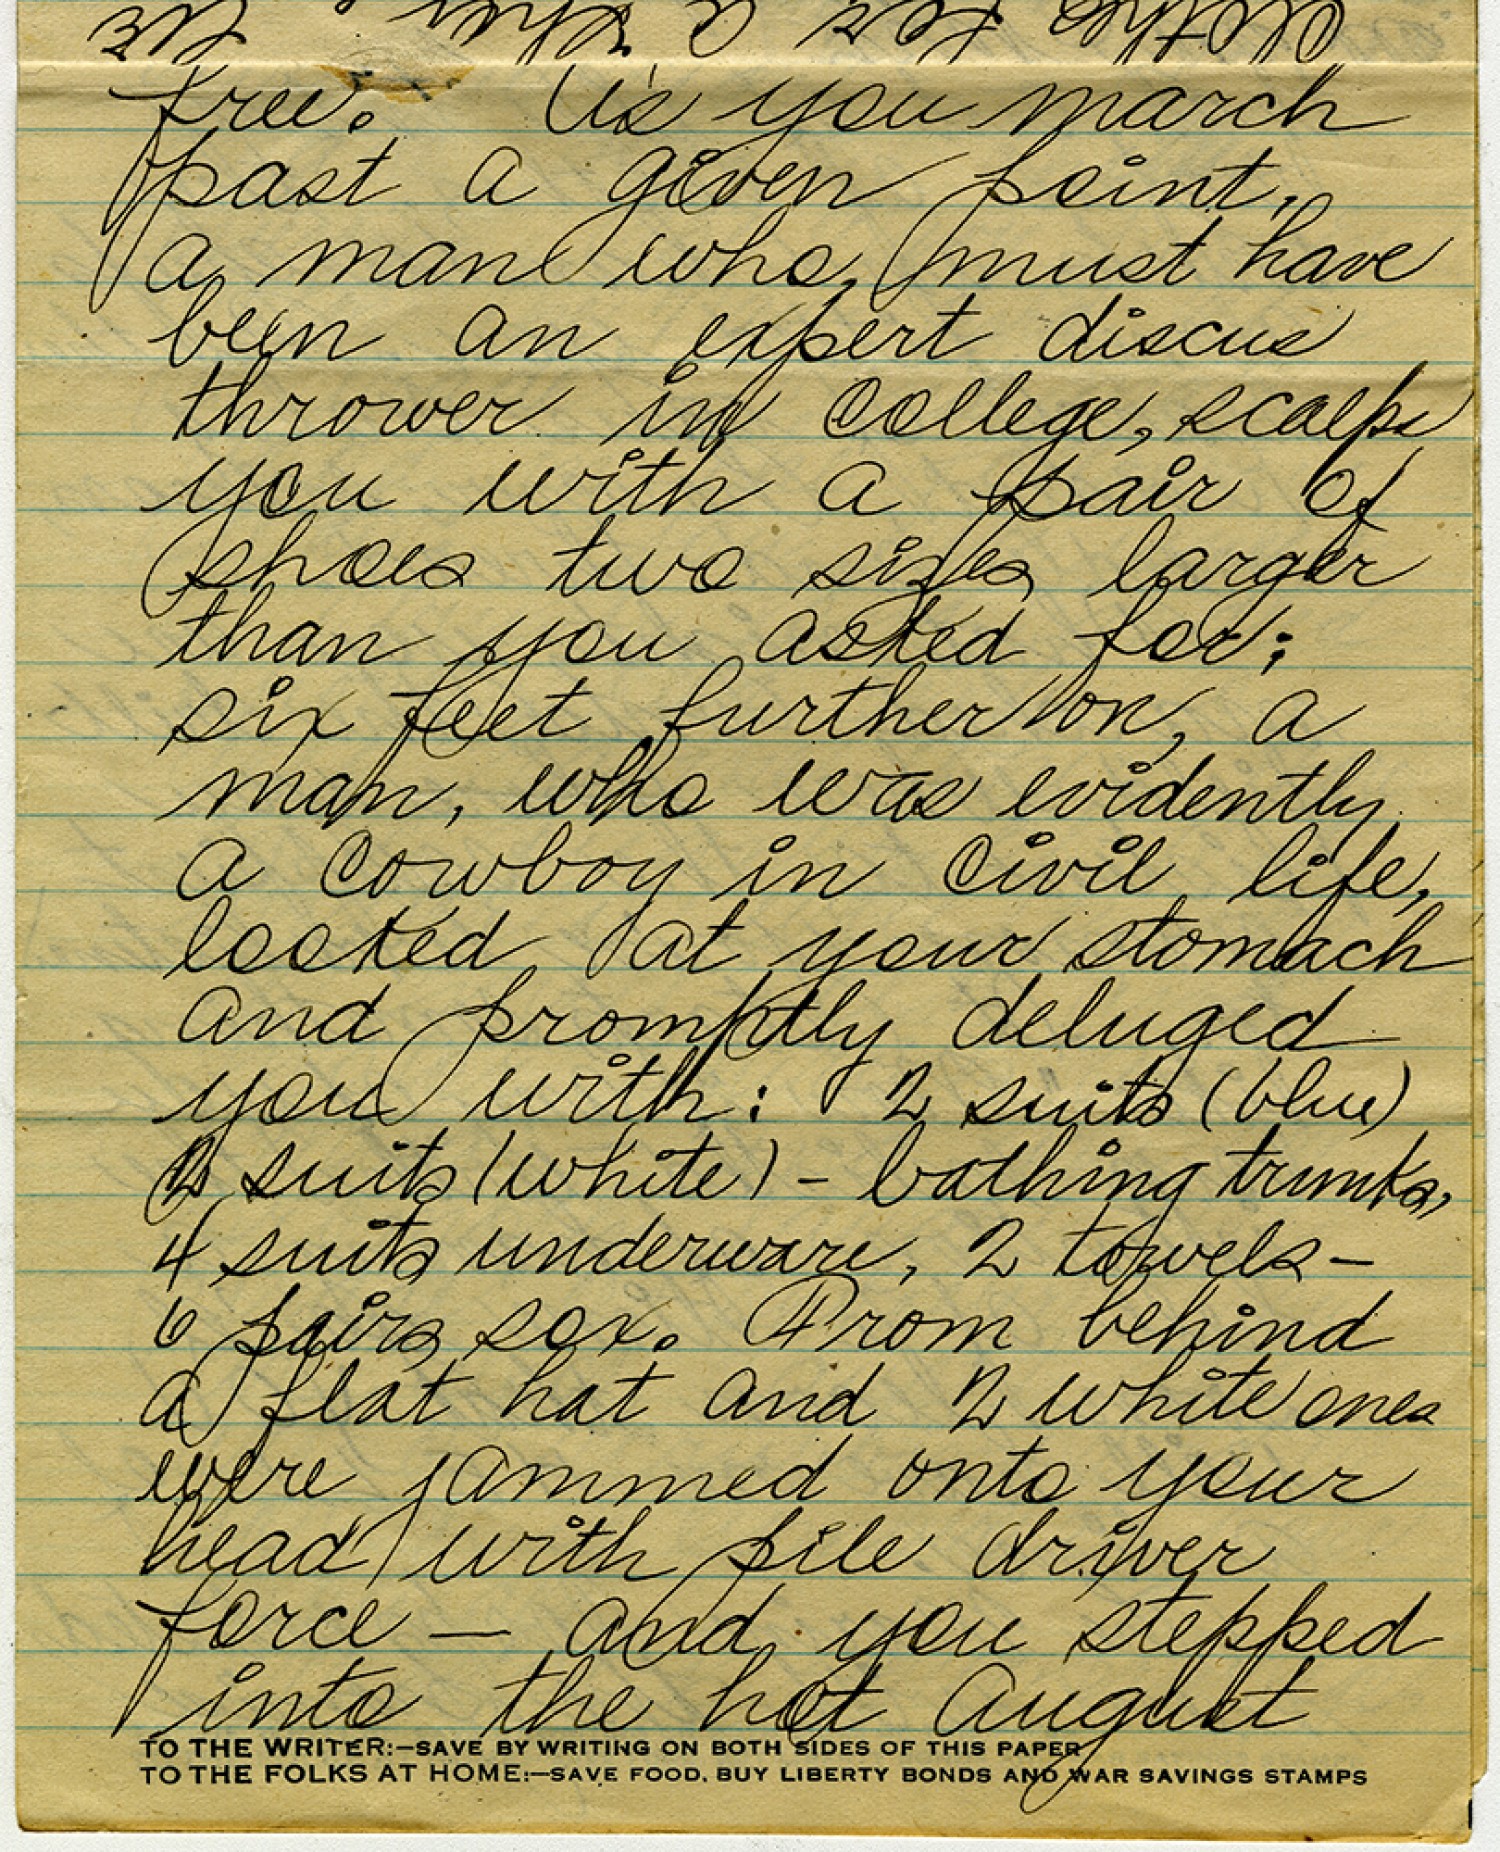 free. As you march
past a given point,
a man who must have
been an expert discus
thrower in College, scalps
you with a pair of
shoes two sizes larger
than you asked for;
six feet further on, a
man, who was evidently
a cowboy in civil life,
looked at your stomach
and promptly deluged
you with: 2 suits (blue)
2 suits (white) - bathing trunks,
4 suits underware, 2 towels -
6 pairs sox. From behind
a flat hat and 2 white ones
were jammed onto your
head with pile driver
force — and you stepped
into the hot August
TO THE WRITER:—SAVE BY WRITING ON BOTH SIDES OF THIS PAPER
TO THE FOLKS AT HOME:—SAVE FOOD, BUY LIBERTY BONDS AND WAR SAVINGS STAMPS